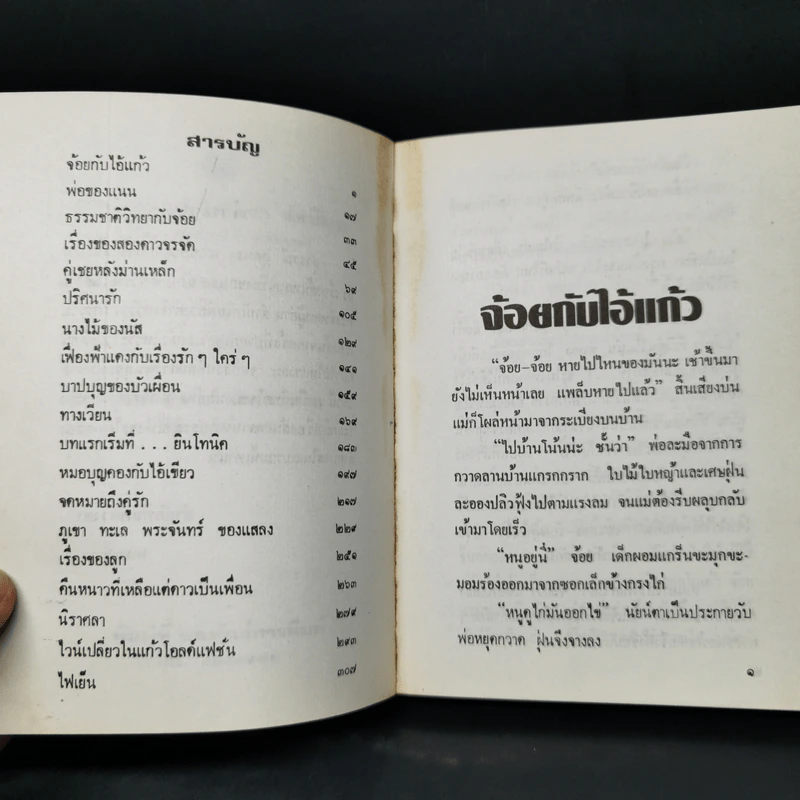 สารบัญ
จ้อยกับไอ้แก้ว
พ่อของแนน ๑
ธรรมชาติวิทยากับจ้อย ๑๗
เรื่องของสองดาวจรจัด ๓๓
คู่เชยหลังม่านเหล็ก ๔๕
ปริศนารัก ๖๙
นางไม้ของนัส ๑๐๕
เฟื่องฟ้าแดงกับเรื่องรัก ๆ ใคร่ ๆ ๑๒๙
บาปบุญของบัวเผื่อน ๑๔๑
ทางเวียน ๑๕๙
บทแรกเริ่มที่ . . . ยินโทนิค ๑๖๙
หมอบุญคองกับไอ้เขียว ๑๘๓
จดหมายถึงคู่รัก ๑๙๗
ภูเขา ทะเล พระจันทร์ ของแสลง ๒๑๗
เรื่องของลูก ๒๒๙
คืนหนาวที่เหลือแต่ดาวเป็นเพื่อน ๒๕๑
นิราศลา ๒๖๓
ไวน์เปลี่ยวในแก้วโอลด์แฟชั่น ๒๗๙
ไฟเย็น ๒๙๓
๓๐๗
จ้อยกับไอ้แก้ว
“จ้อย–จ้อย หายไปไหนของมันนะ เช้าขึ้นมา
ยังไม่เห็นหน้าเลย แพล็บหายไปแล้ว” สิ้นเสียงบ่น
แม่ก็โผล่หน้ามาจากระเบียงบนบ้าน
“ไปบ้านโน้นน่ะ ชั้นว่า” พ่อละมือจากการ
กวาดลานบ้านแกรกกราก ใบไม้ใบหญ้าและเศษฝุ่น
ละอองปลิวฟุ้งไปตามแรงลม จนแม่ต้องรีบผลุบกลับ
เข้ามาโดยเร็ว
“หนูอยู่นี่” จ้อย เด็กผอมแกร็นขะมุกขะ-
มอมร้องออกมาจากซอกเล็กข้างกรงไก่
“หนูดูไก่มันออกไข่” นัยน์ตาเป็นประกายวับ
พ่อหยุดกวาด ฝุ่นจึงจางลง
๑